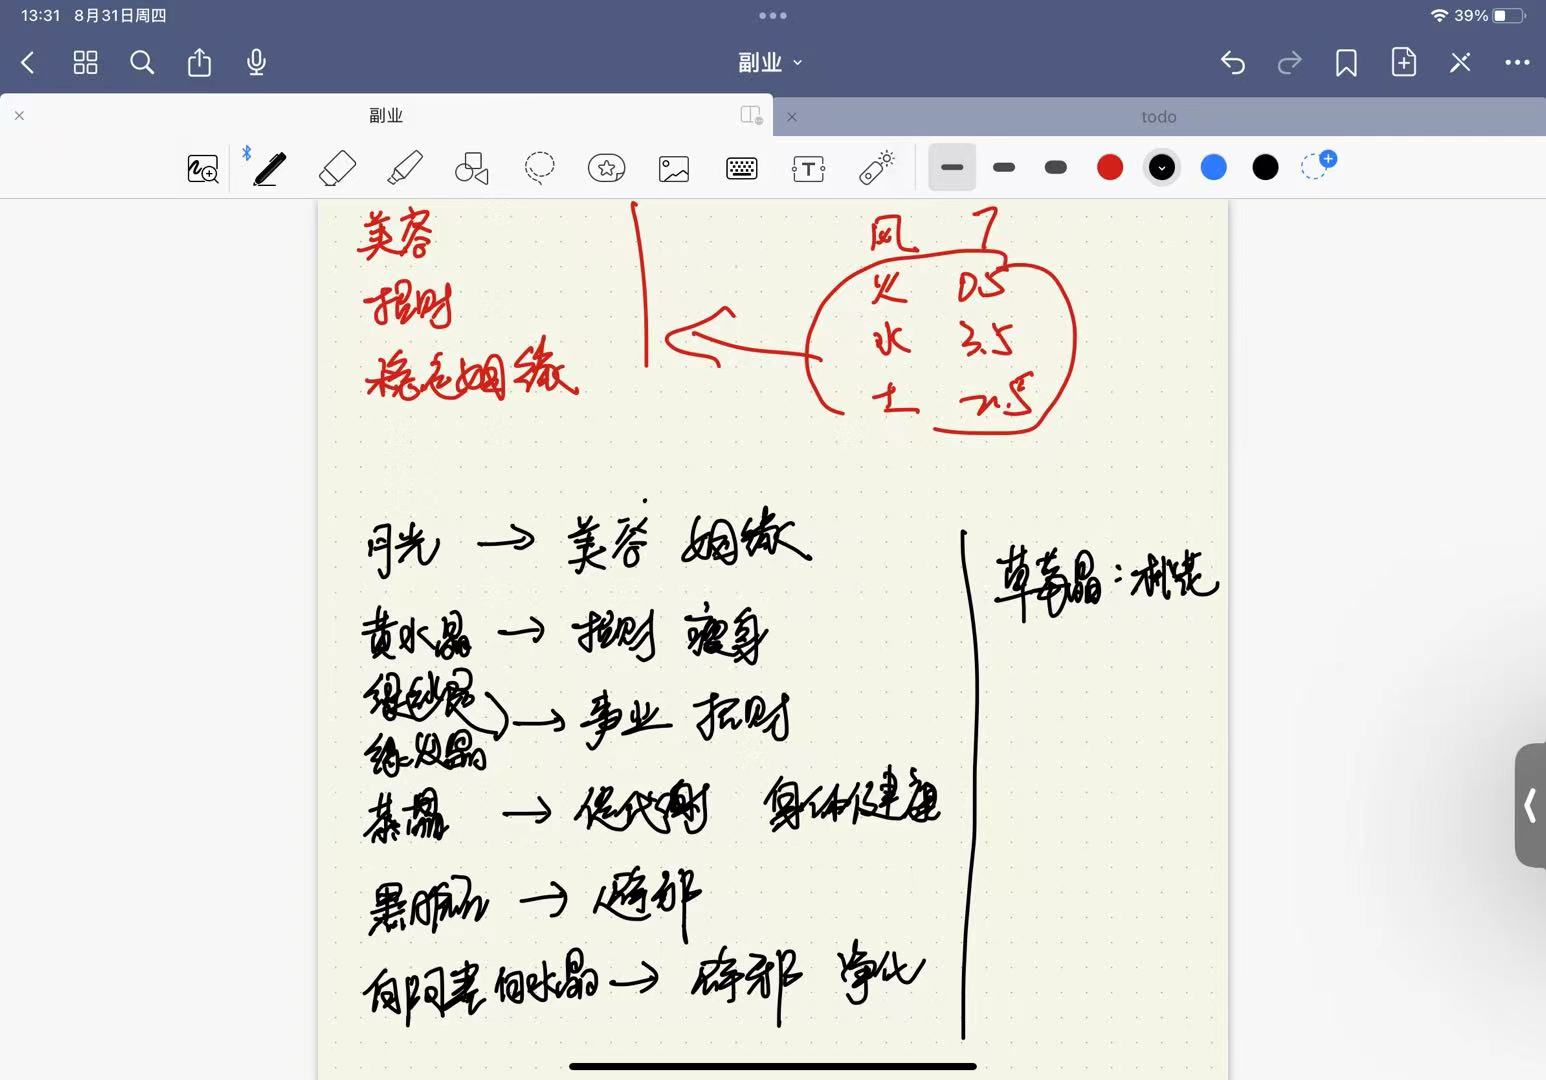 13:31 8月31日周四
39%
副业
副业
todo
美容
招财
稳定姻缘
风 7
火 0.5
水 3.5
土 2.5
月光 → 美容 姻缘
草莓晶：桃花
黄水晶 → 招财 瘦身
绿幽灵
绿发晶 → 事业 招财
茶晶 → 促代谢 身体健康
黑曜石 → 避邪
白阿塞 白水晶 → 辟邪 净化